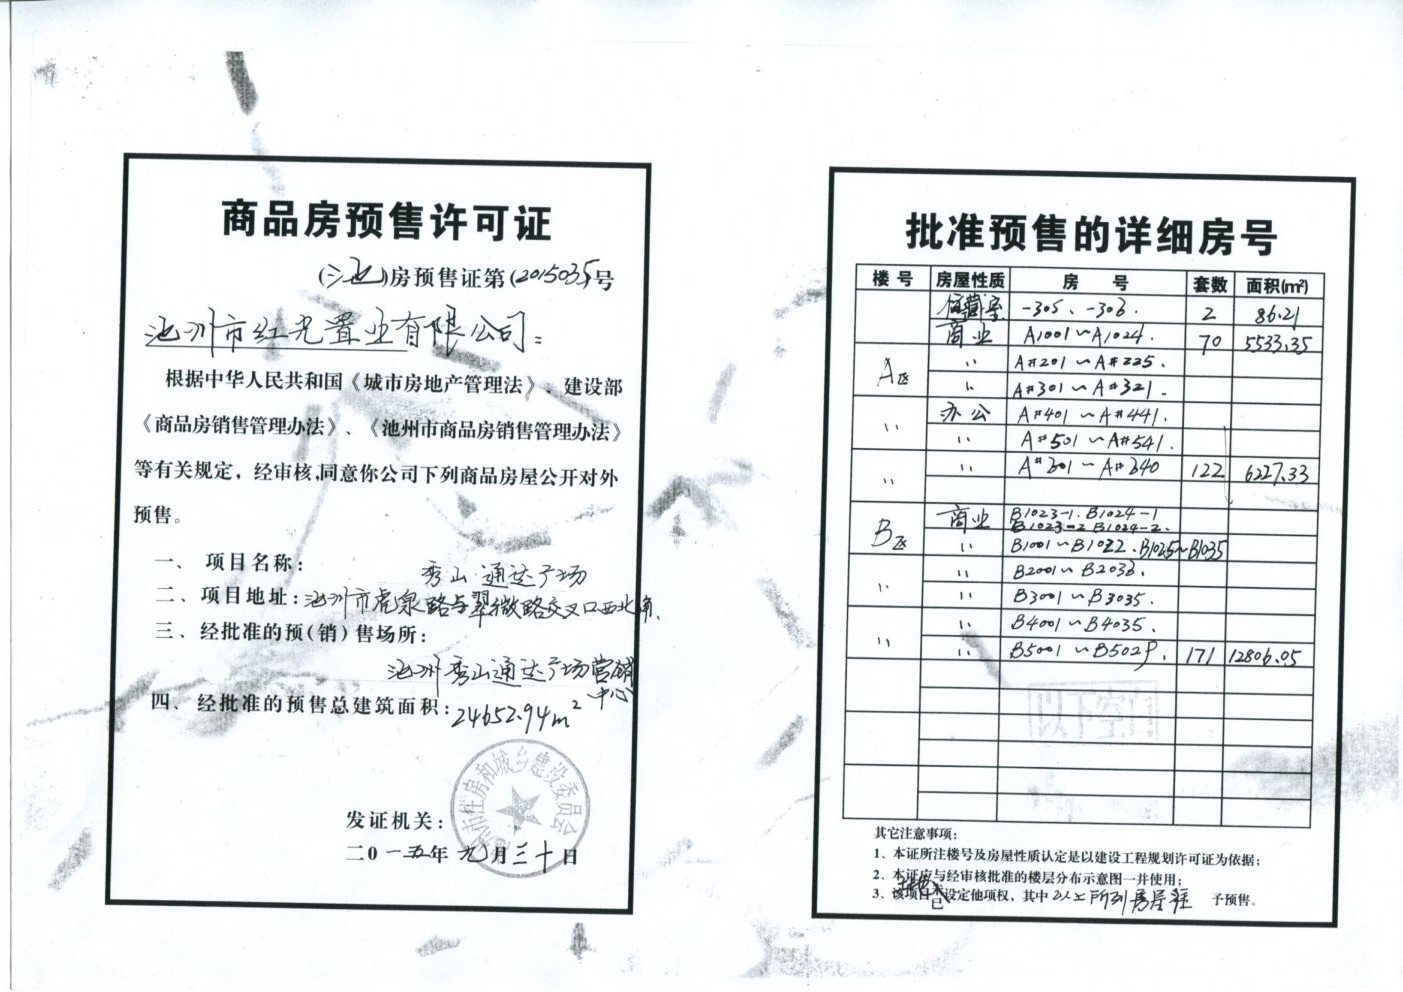 商品房预售许可证
(池)房预售证第(2015035号
池州市红光置业有限公司:
根据中华人民共和国《城市房地产管理法》、建设部
《商品房销售管理办法》、《池州市商品房销售管理办法》
等有关规定，经审核,同意你公司下列商品房屋公开对外
预售。
一、 项目名称:
秀山通达广场
二、项目地址:池州市虎泉路与翠微路交叉口西北角.
三、经批准的预(销)售场所:
池州秀山通达广场营销
中心
四、经批准的预售总建筑面积:24652.94m²
池州市住房和城乡建设委员会
发证机关:
二0一五年九月三十日
批准预售的详细房号
楼号 房屋性质 房 号 套数 面积(㎡)
-305、-306. 2 86.21
商业 A1001~A1024. 70 5533.35
A区 〃 A#201~A#225.
〃 A#301~A#321.
〃 办公 A#401~A#441.
〃 A#501~A#541.
〃 〃 A#601~A#640 122 6227.33
B区 商业 B1023-1. B1024-1
B1023-2 B1024-2.
〃 B1001~B1022.B1025~B1035
〃 〃 B2001~B2036.
〃 B3001~B3035.
〃 〃 B4001~B4035.
〃 B5001~B5029. 171 12806.05
以下空白
其它注意事项:
1、本证所注楼号及房屋性质认定是以建设工程规划许可证为依据;
2、本证应与经审核批准的楼层分布示意图一并使用;
3、该项目未已设定他项权，其中以上所列房屋准 予预售。